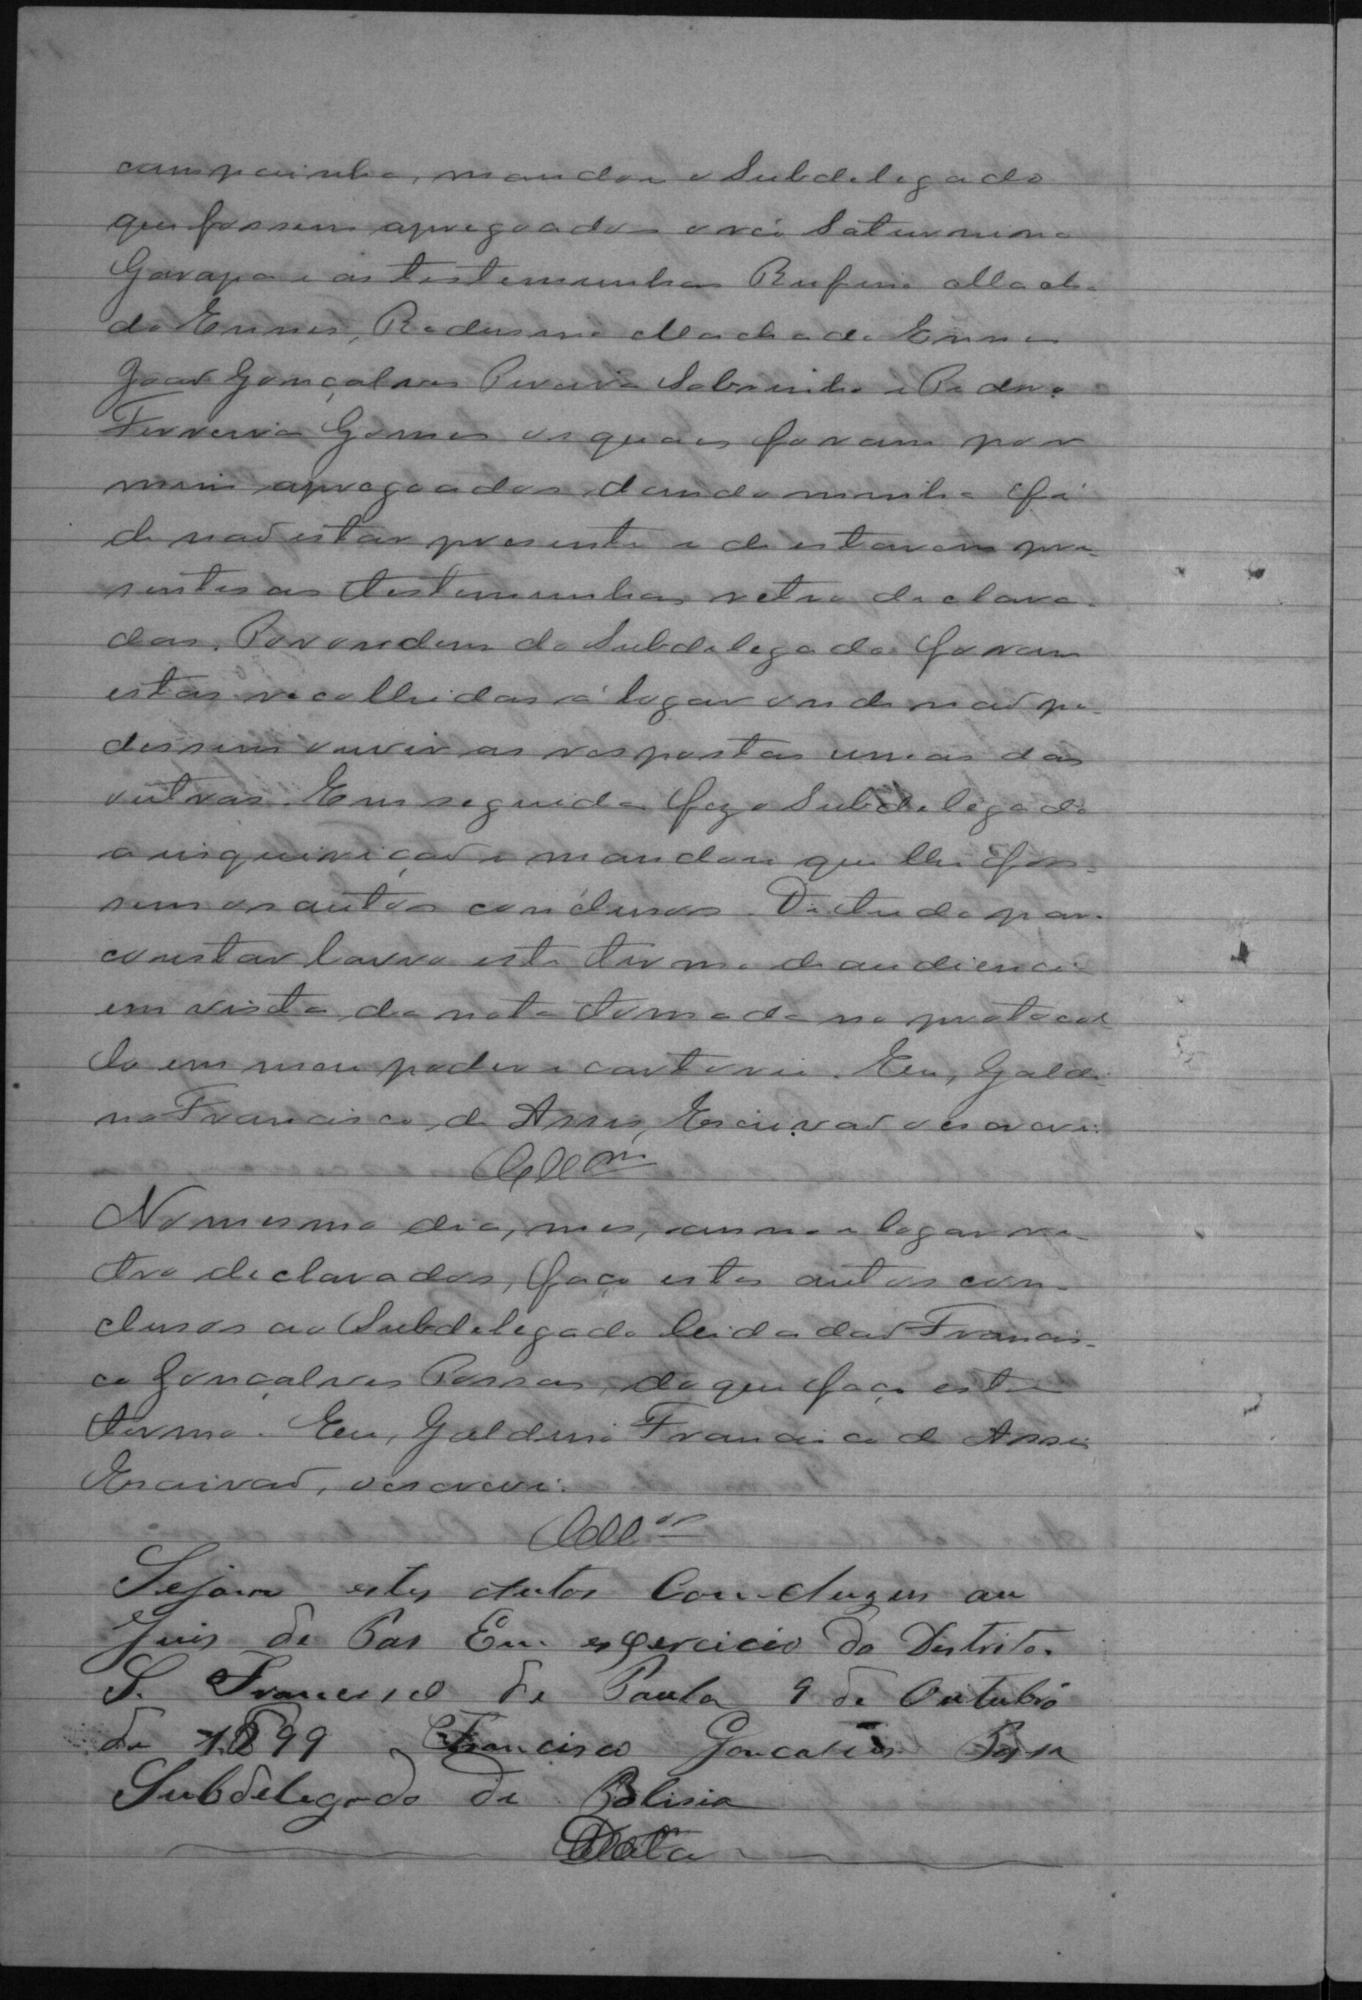 campainha, mandou o Subdelegado
que fossem apregoados o réo Saturnino
Garapa e as testemunhas Rufino Macha-
do Ennes, Redusino Machado Ennes
João Gonçalves Pereira Sobrinho e Pedro
Ferreira Gomes os quaes foram por
mim apregoados, dando minha fé
de não estar presente e de estarem pre-
sentes as testemunhas retro declara-
das. Por ordem do Subdelegado foram
estas recolhidas á logar onde não po-
dessem ouvir as respostas umas das
outras. Em seguida fez o Subdelegado
a inquirição e mandou que lhe fos-
sem os autos conclusos. De tudo para
constar lavro este termo de audiencia
em vista da nota tomada no protocol
lo em meu poder e cartorio. Eu, Galdi-
no Francisco de Assis, Escrivão o escrevi.
No mesmo dia, mes, anno e logar re-
tro declarados, faço estes autos con-
clusos ao Subdelegado Cidadão Francis-
co Gonçalves Possas, do que faço este
termo. Eu, Galdino Francisco de Assis
Escrivão, o escrevi.
Sejam estes Autos Concluzus au
Juis de Pas Em esxercicio do Destrito.
S. Francisco de Paula 9 de Outubro
de 1899 Francisco Goncalves
Subdelegado de Polisia
Data